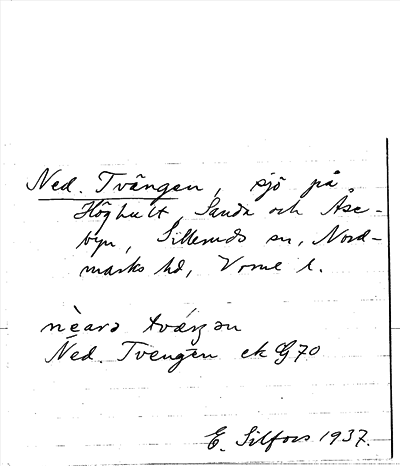 Ned. Tvängen, sjö på
Höghult, Sanda och Åse-
byn, Silleruds sn, Nord-
marks hd, Vrml l.
nèarə tvæŋən
Ned. Tvengen ek G70
E. Silfors 1937.